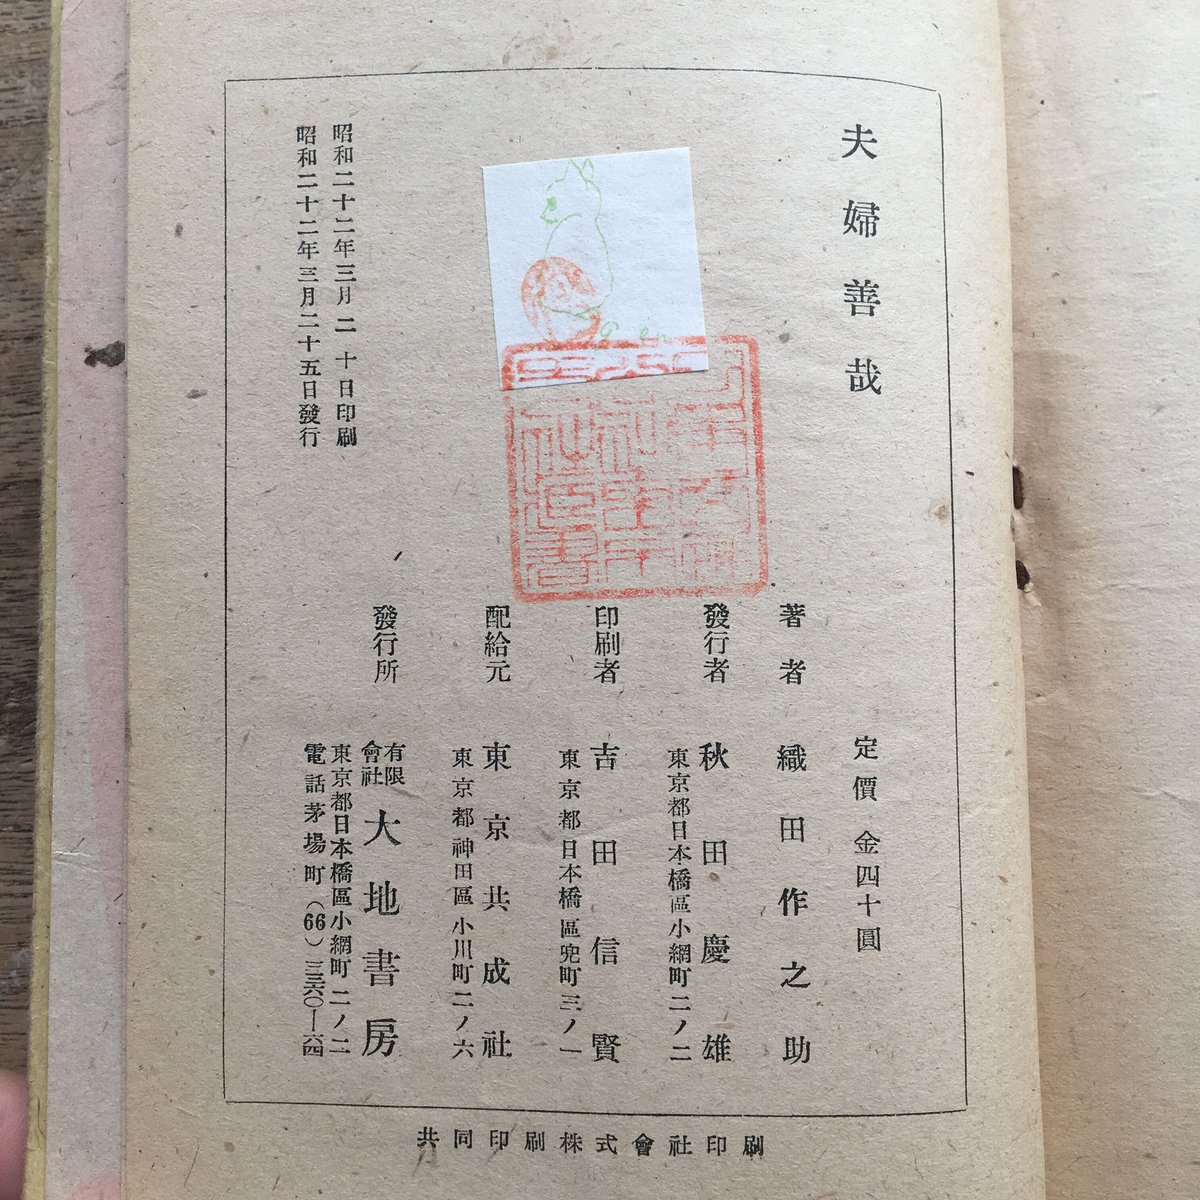 夫婦善哉
定價 金四十圓
著者 織田作之助
發行者 秋田慶雄
東京都日本橋區小網町二ノ二
印刷者 吉田信賢
東京都日本橋區兜町三ノ一
配給元 東京共成社
東京都神田區小川町二ノ六
發行所 有限會社 大地書房
東京都日本橋區小網町二ノ二
電話茅場町(66)三三六〇—六四
昭和二十二年三月二十日印刷
昭和二十二年三月二十五日發行
共同印刷株式會社印刷